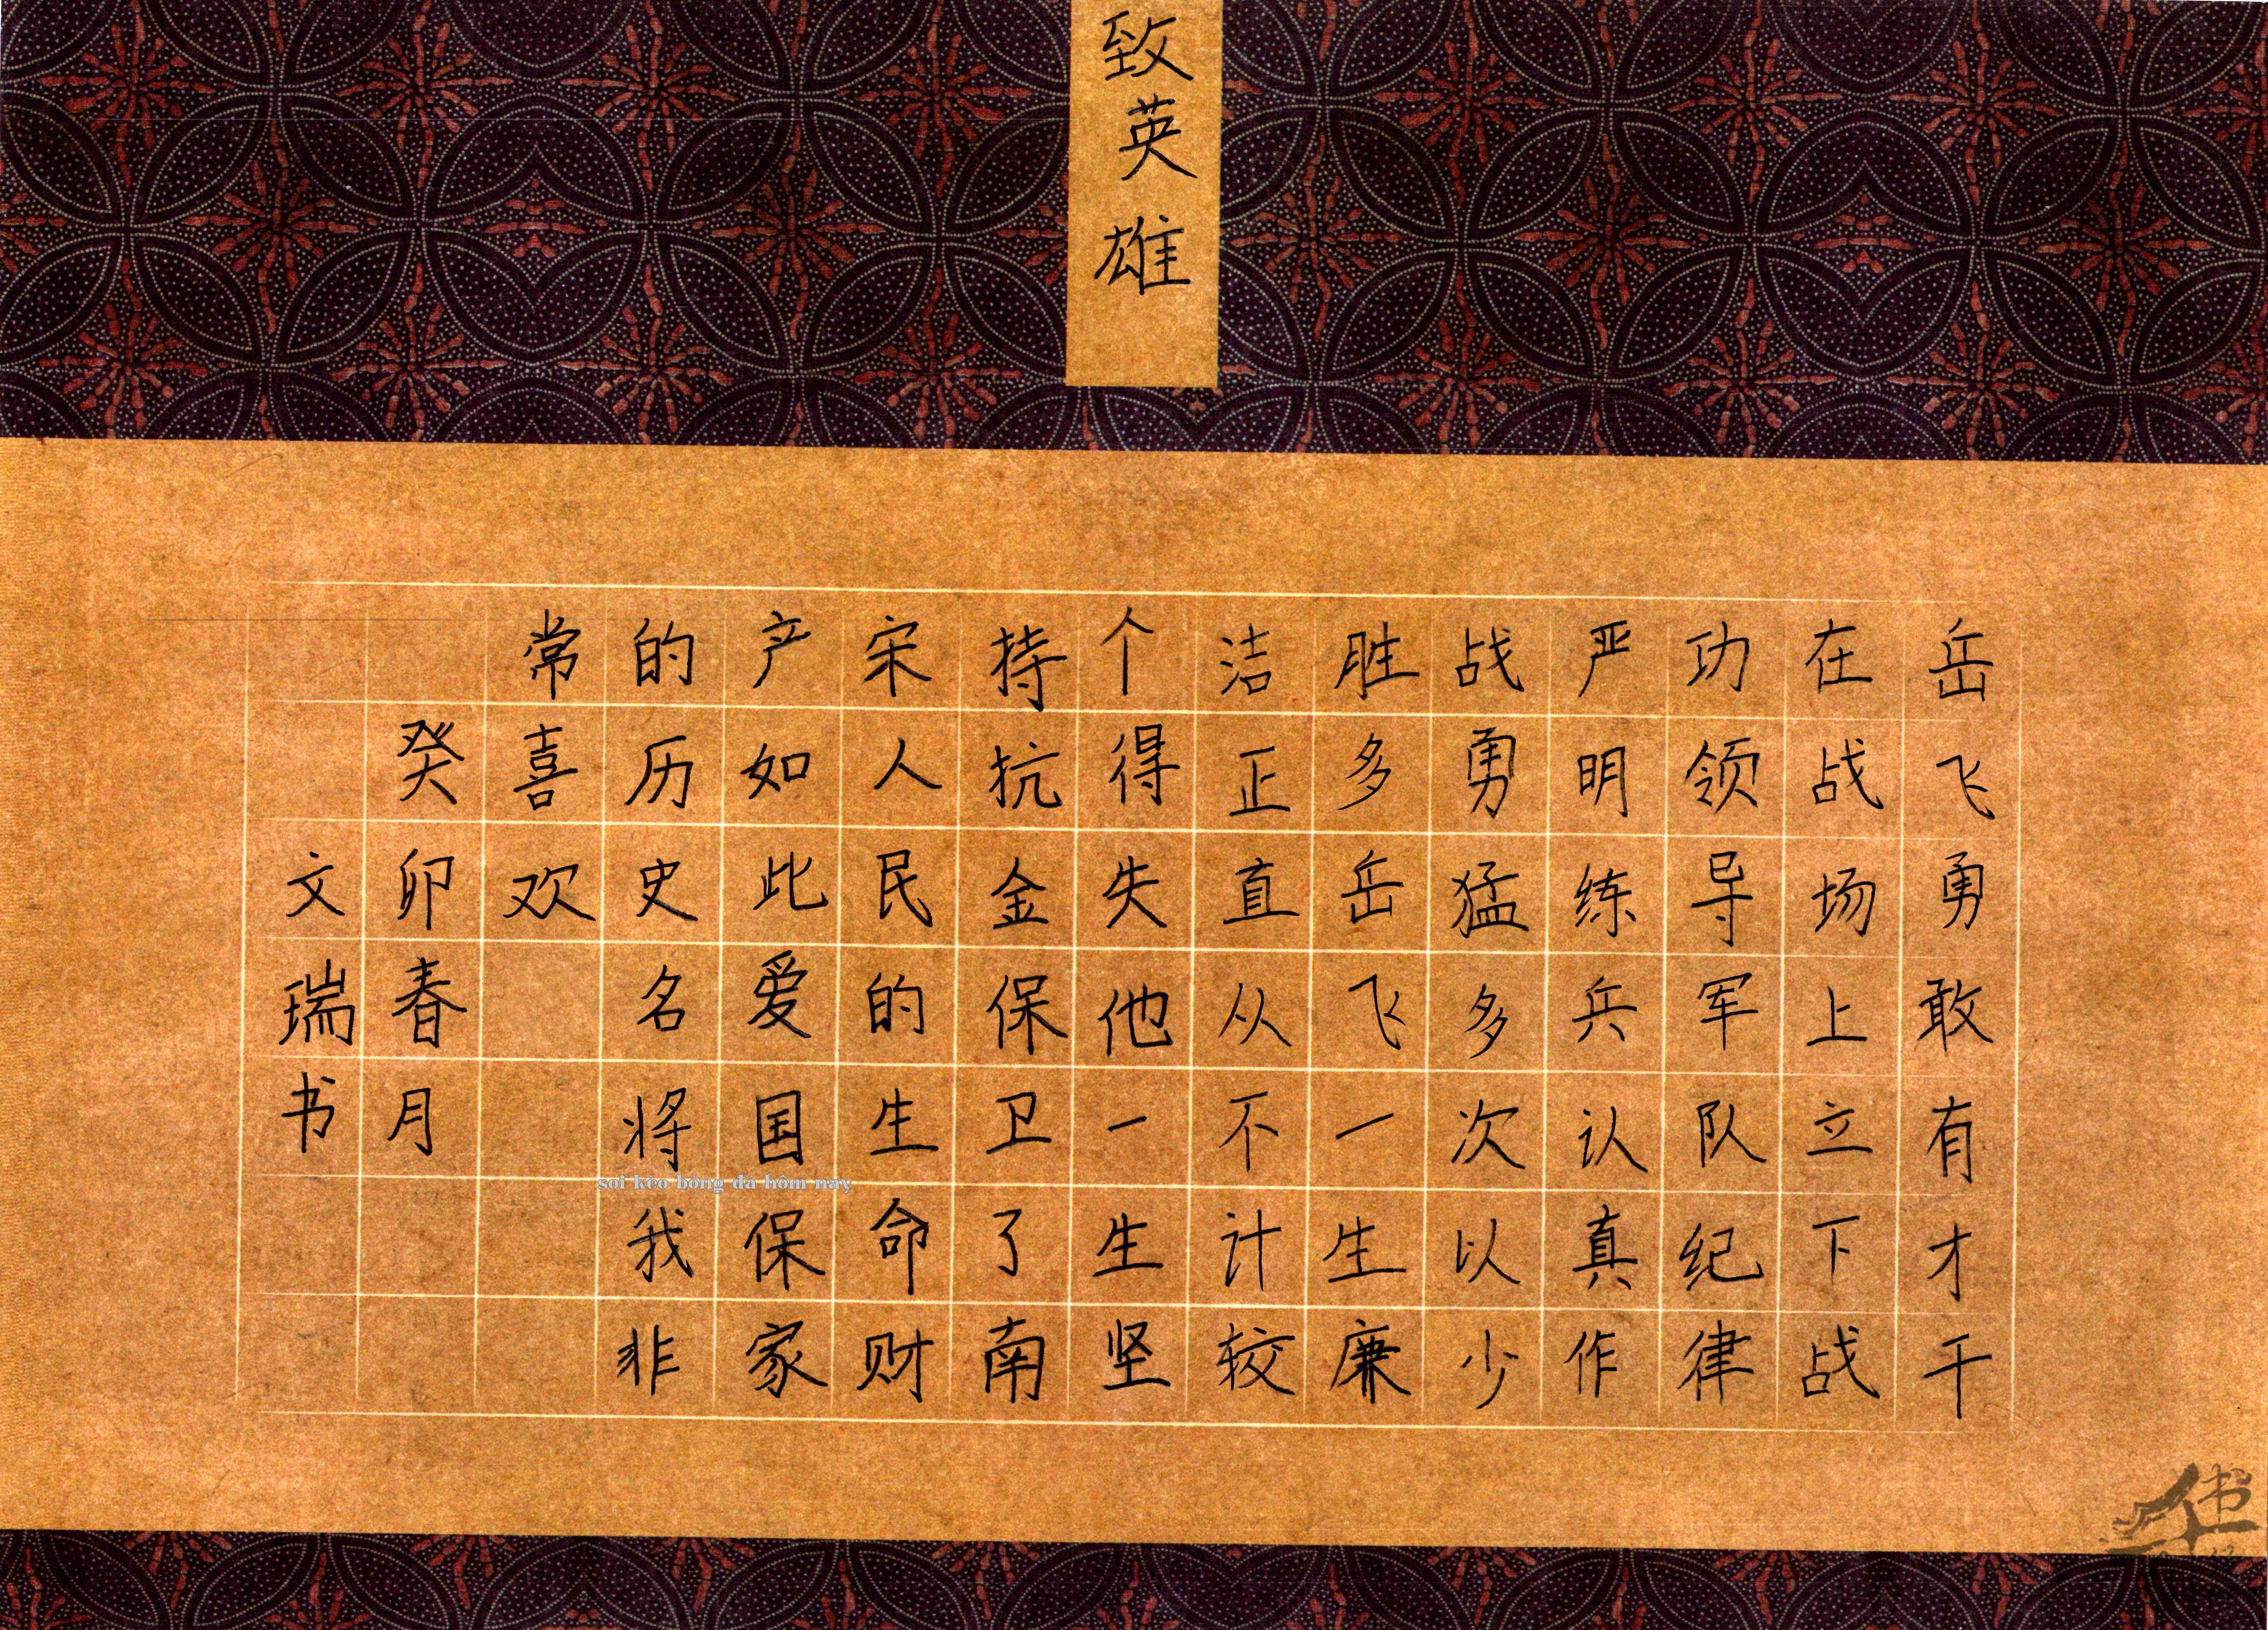 致英雄
岳飞勇敢有才干
在战场上立下战
功领导军队纪律
严明练兵认真作
战勇猛多次以少
胜多岳飞一生廉
洁正直从不计较
个得失他一生坚
持抗金保卫了南
宋人民的生命财
产如此爱国保家
的历史名将我非
常喜欢
癸卯春月
文瑞书
soi kèo bóng đá hôm nay
书